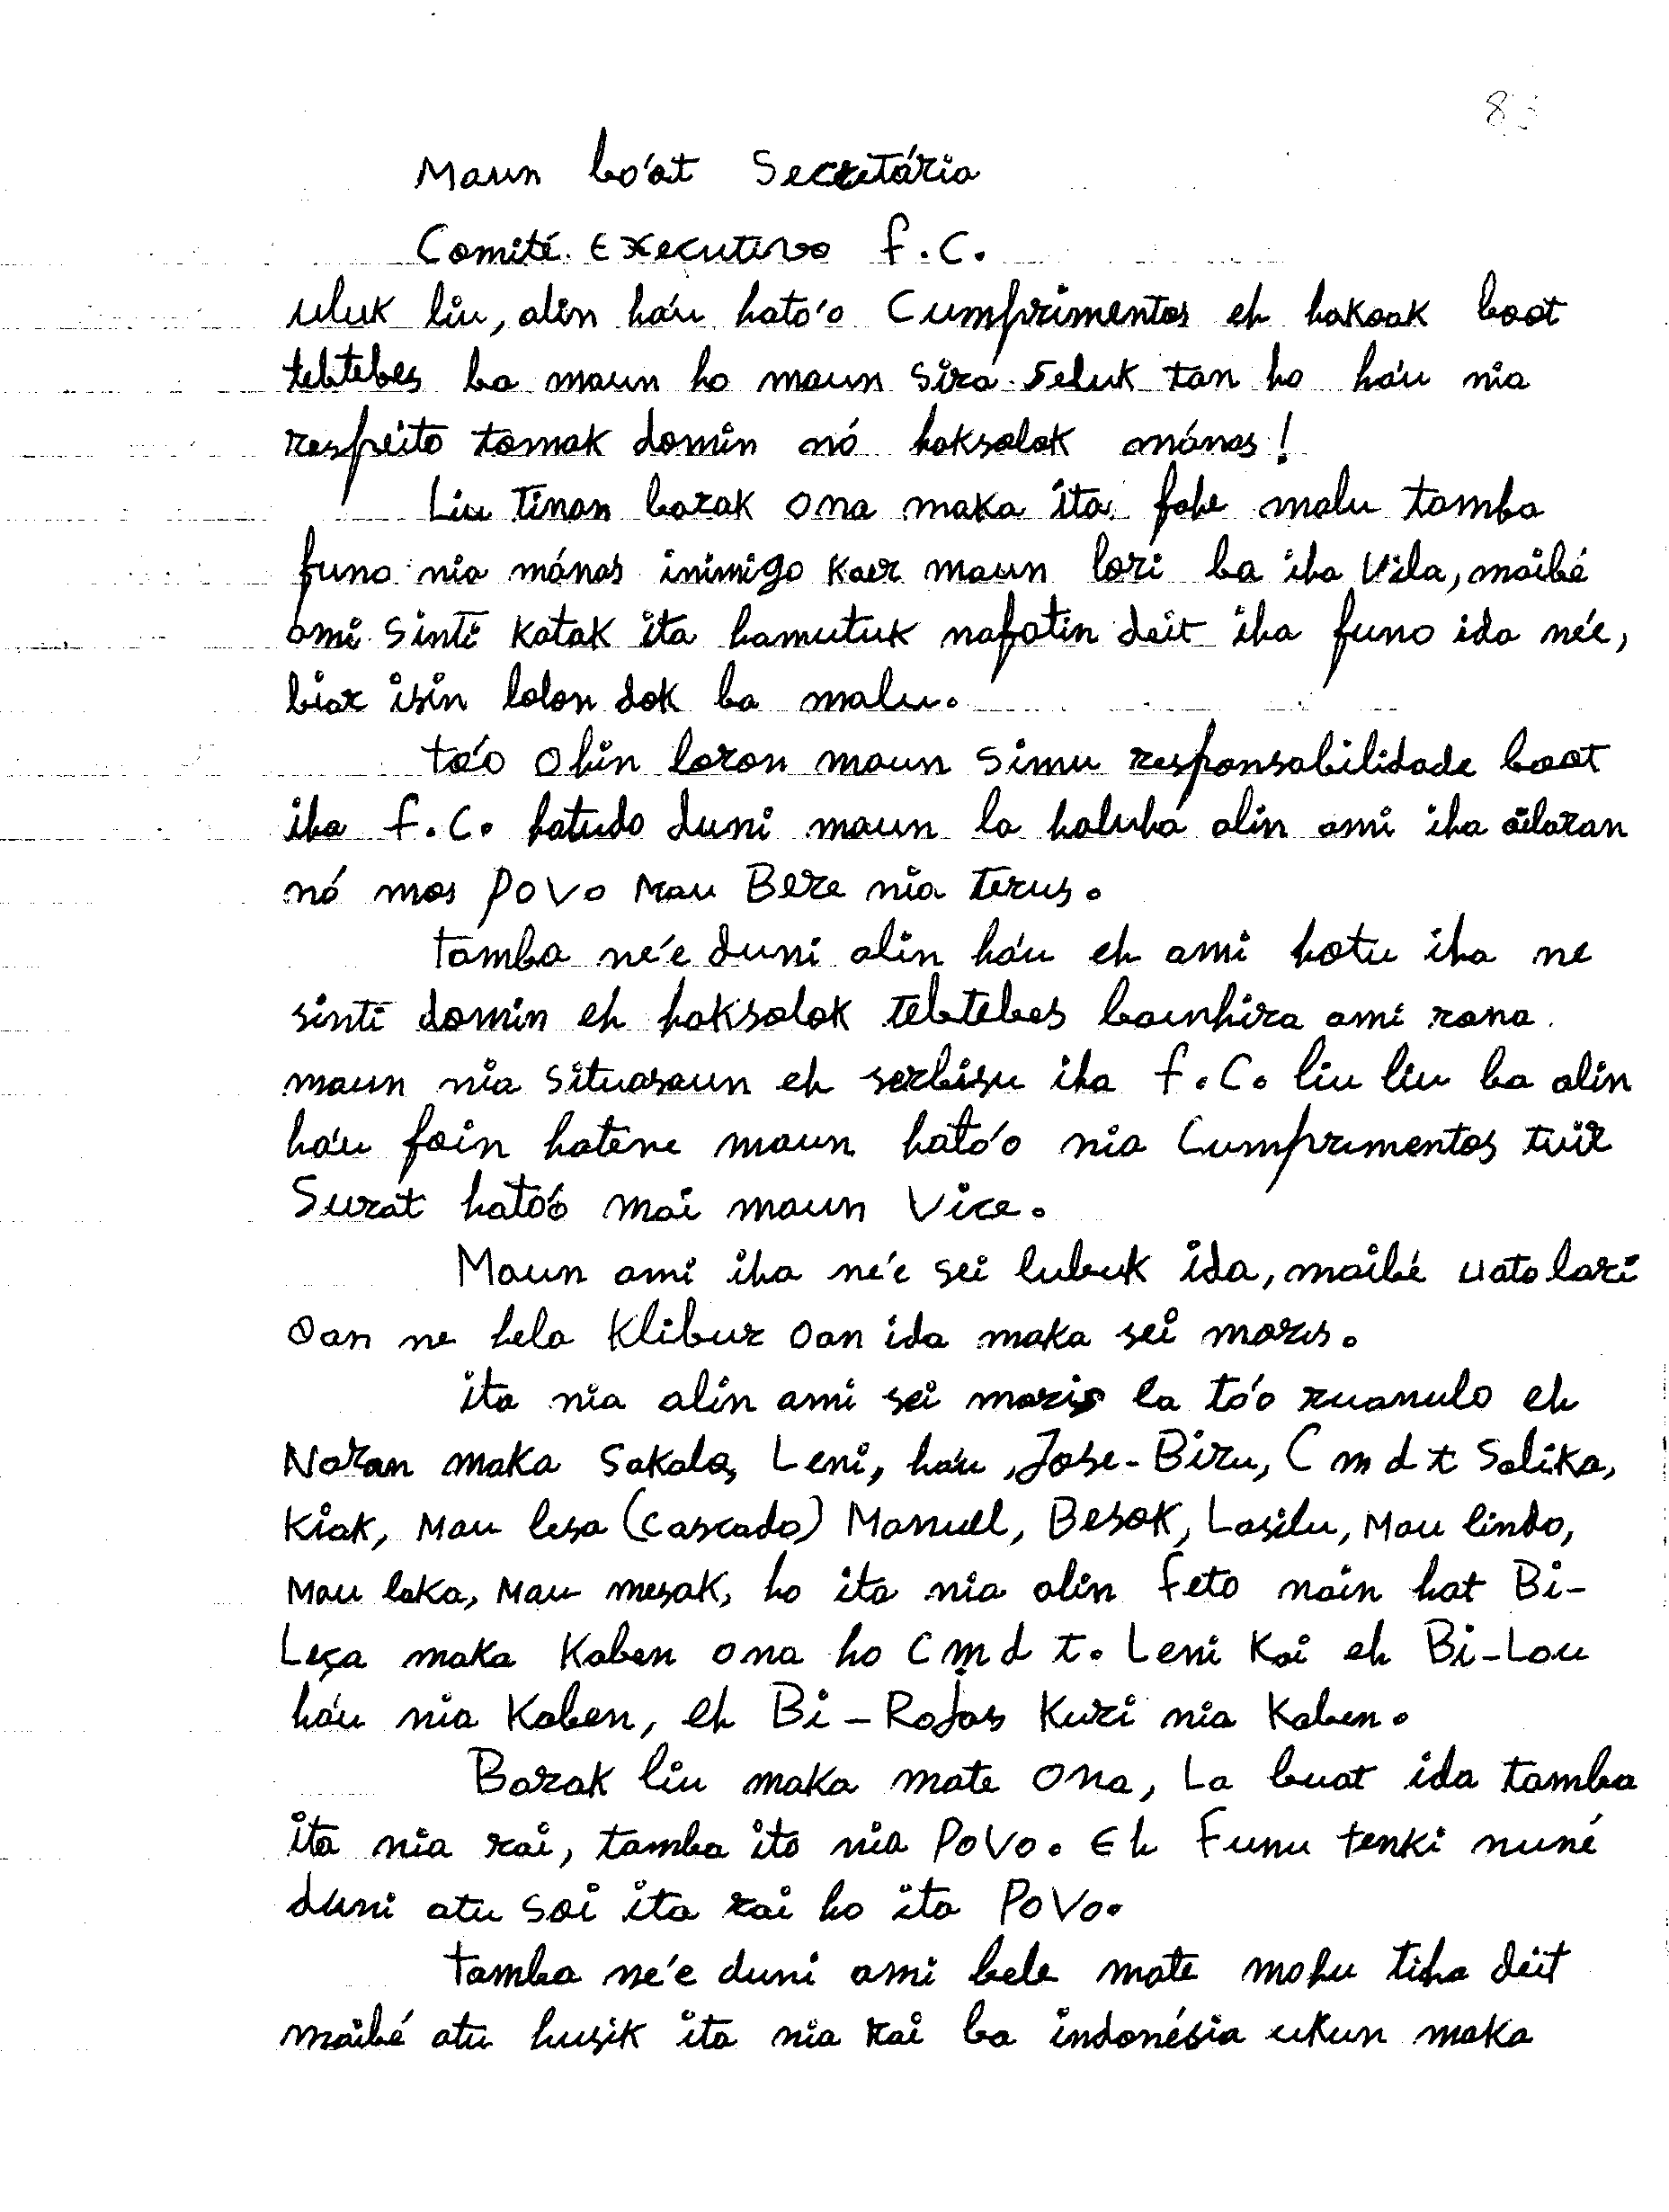 Maun bo'ot Secretário
Comité Executivo F.C.
uluk liu, alin há'u hato'o Cumprimentos eh hakoak boot
tebtebes ba maun ho maun sira seluk tan ho há'u nia
respeito tomak domin nó haksolok mánas!
Liu tinan barak ona maka ita fahe malu tamba
funo nia mánas inimigo kaer maun lori ba iha Vila, maibé
ami sinti katak ita hamutuk nafatin deit iha funo ida né'e,
biar isin lolon dok ba malu.
tó'o ohin loron maun simu responsabilidade boot
iha F.C. hatudo duni maun la haluha alin ami iha ailaran
nó mos Povo Mau Bere nia terus.
tamba né'e duni alin há'u eh ami hotu iha ne
sinti domin eh haksolok tebtebes bainhira ami rona
maun nia situasaun eh serbisu iha F.C. liu liu ba alin
há'u foin hatene maun ható'o nia Cumprimentos tuir
Surat ható'o mai maun Vice.
Maun ami iha né'e sei lubuk ida, maibé uato lari
oan ne hela Klibur oan ida maka sei moris.
ita nia alin ami sei moris la tó'o ruanulo eh
Naran maka Sakala, Leni, há'u, Jose-Biru, Cmdt Solika,
Kiak, Mau lesa (Cascado) Manuel, Besok, Lasilu, Mau lindo,
Mau loka, Mau mesak, ho ita nia alin feto nain hat Bi-
Leça maka Kaben ona ho Cmdt. Leni Kai eh Bi-Lou
há'u nia Kaben, eh Bi-Rojas Kuri nia Kaben.
Barak liu maka mate ona, La buat ida tamba
ita nia rai, tamba ita nia Povo. Eh Funu tenki nuné
duni atu soi ita rai ho ita Povo.
tamba né'e duni ami bele mate mohu tiha deit
maibé atu husik ita nia rai ba indonésia ukun maka